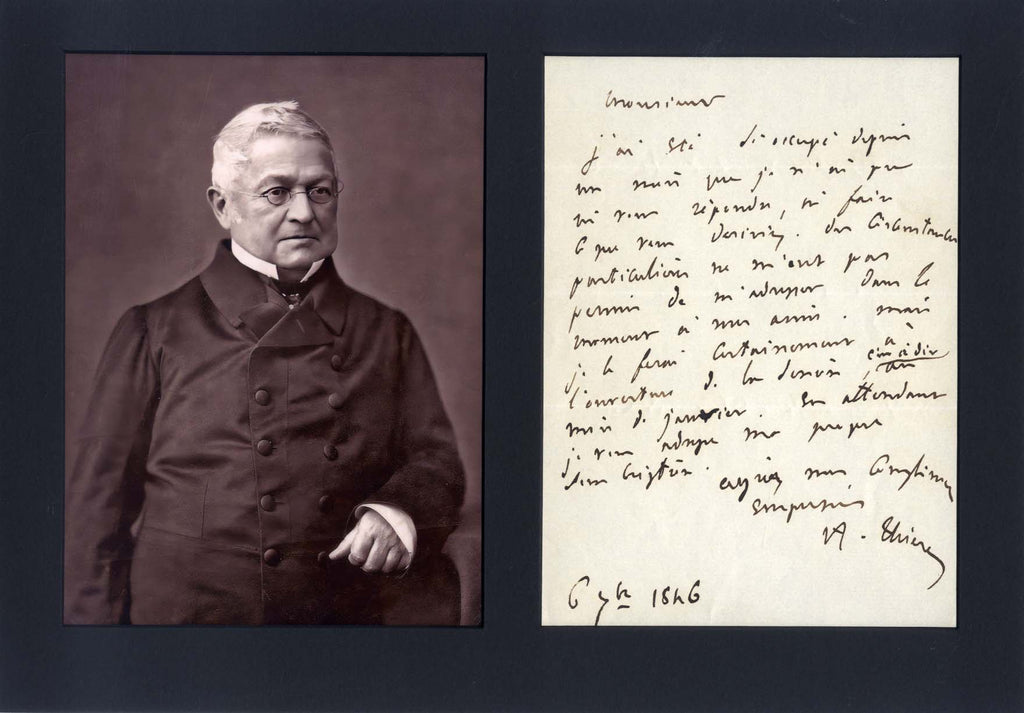 Monsieur
j'ai été si occupé depuis
un mois que je n'ai pu
ni vous répondre, ni faire
ce que vous desiriez. des circonstances
particulières ne m'ont pas
permis de m'adresser dans le
moment à mes amis. mais
je le ferai certainement à
l'ouverture de la session, c'est à dire au
mois de janvier. En attendant
je vous adresse ma propre
souscription. agréez mes complimens
empressés
A. Thiers
6 9bre 1846